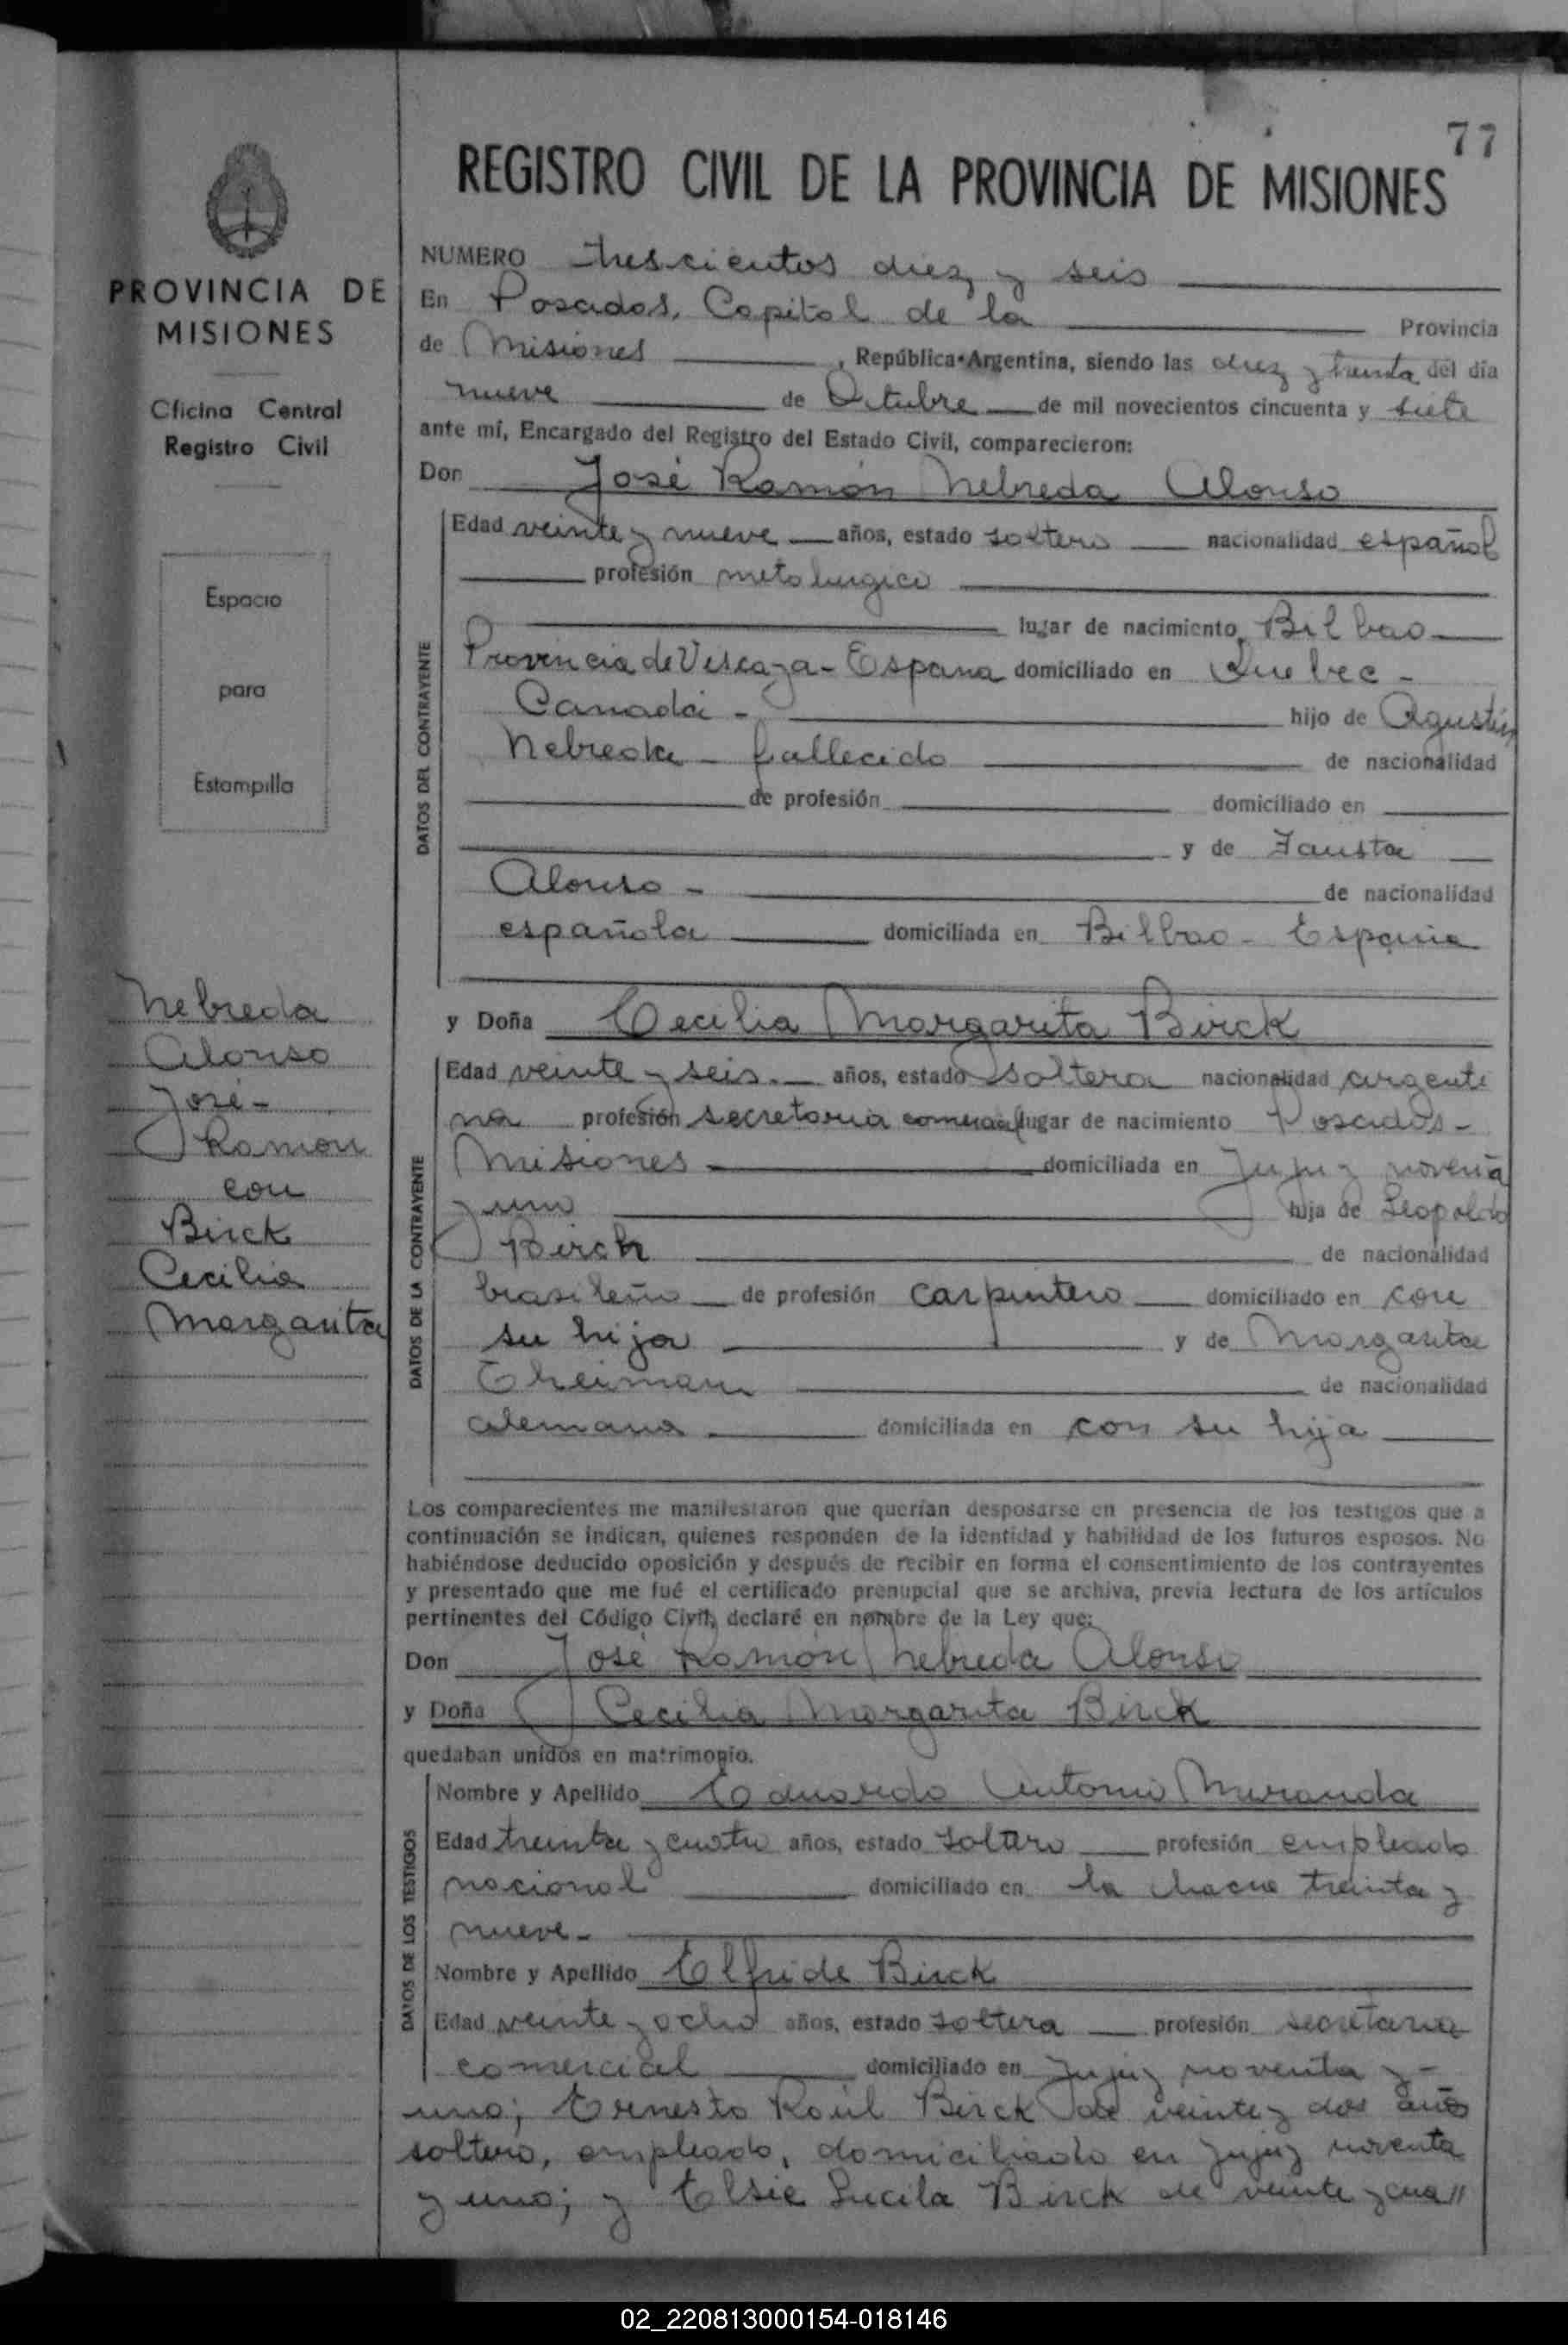 77
REGISTRO CIVIL DE LA PROVINCIA DE MISIONES
PROVINCIA DE
MISIONES
Oficina Central
Registro Civil
Espacio
para
Estampilla
Nebreda
Alonso
José-
Ramon
con
Birck
Cecilia
Margarita
NUMERO trescientos diez y seis
En Posadas, Capital de la Provincia
de Misiones, República Argentina, siendo las diez y treinta del día
nueve de Octubre de mil novecientos cincuenta y siete
ante mí, Encargado del Registro del Estado Civil, comparecieron:
Don José Ramón Nebreda Alonso
DATOS DEL CONTRAYENTE
Edad veinte y nueve años, estado soltero nacionalidad español
profesión metalurgico
lugar de nacimiento Bilbao
Provincia de Viscaya - España domiciliado en Quebec -
Canadá - hijo de Agustín
Nebreda - fallecido de nacionalidad
de profesión domiciliado en
y de Fausta
Alonso - de nacionalidad
española domiciliada en Bilbao - España
y Doña Cecilia Margarita Birck
DATOS DE LA CONTRAYENTE
Edad veinte y seis. años, estado soltera nacionalidad argenti
na profesión secretaria comercial lugar de nacimiento Posadas -
Misiones domiciliada en Jujuy noventa
y uno hija de Leopoldo
Birck de nacionalidad
brasileño de profesión carpintero domiciliado en con
su hija y de Margarita
Theimann de nacionalidad
alemana domiciliada en con su hija
Los comparecientes me manifestaron que querían desposarse en presencia de los testigos que a
continuación se indican, quienes responden de la identidad y habilidad de los futuros esposos. No
habiéndose deducido oposición y después de recibir en forma el consentimiento de los contrayentes
y presentado que me fué el certificado prenupcial que se archiva, previa lectura de los artículos
pertinentes del Código Civil, declaré en nombre de la Ley que:
Don José Ramón Nebreda Alonso
y Doña Cecilia Margarita Birck
quedaban unidos en matrimonio.
DATOS DE LOS TESTIGOS
Nombre y Apellido Eduardo Antonio Miranda
Edad treinta y cuatro años, estado soltero profesión empleado
nacional domiciliado en la chacra treinta y
nueve -
Nombre y Apellido Elfride Birck
Edad veinte y ocho años, estado soltera profesión secretaria
comercial domiciliado en Jujuy noventa y -
uno; Ernesto Raúl Birck de veinte y dos años
soltero, empleado, domiciliado en Jujuy noventa
y uno; y Elsie Lucila Birck de veinte y cua"
02_220813000154-018146